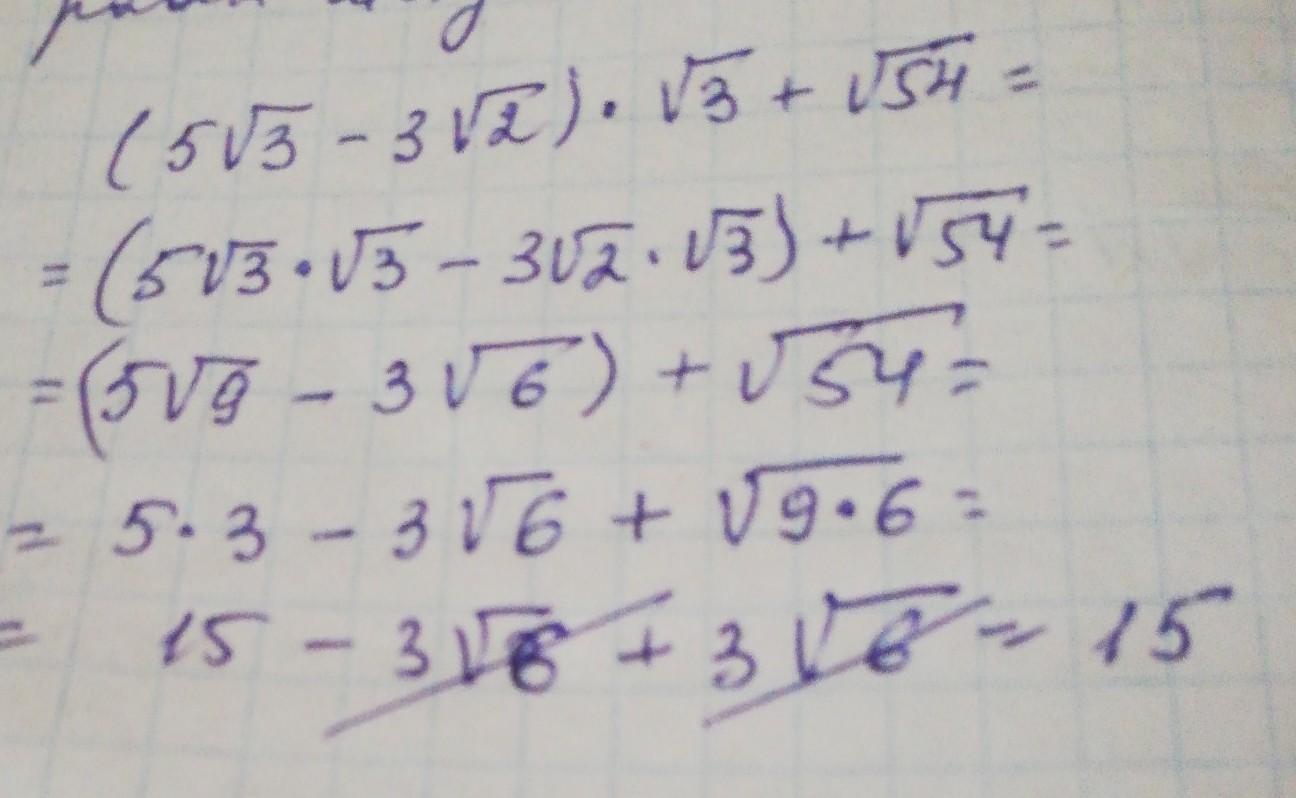 (5√3 - 3√2) · √3 + √54 =
= (5√3 · √3 - 3√2 · √3) + √54 =
= (5√9 - 3√6) + √54 =
= 5 · 3 - 3√6 + √9 · 6 =
= 15 - 3√6 + 3√6 = 15